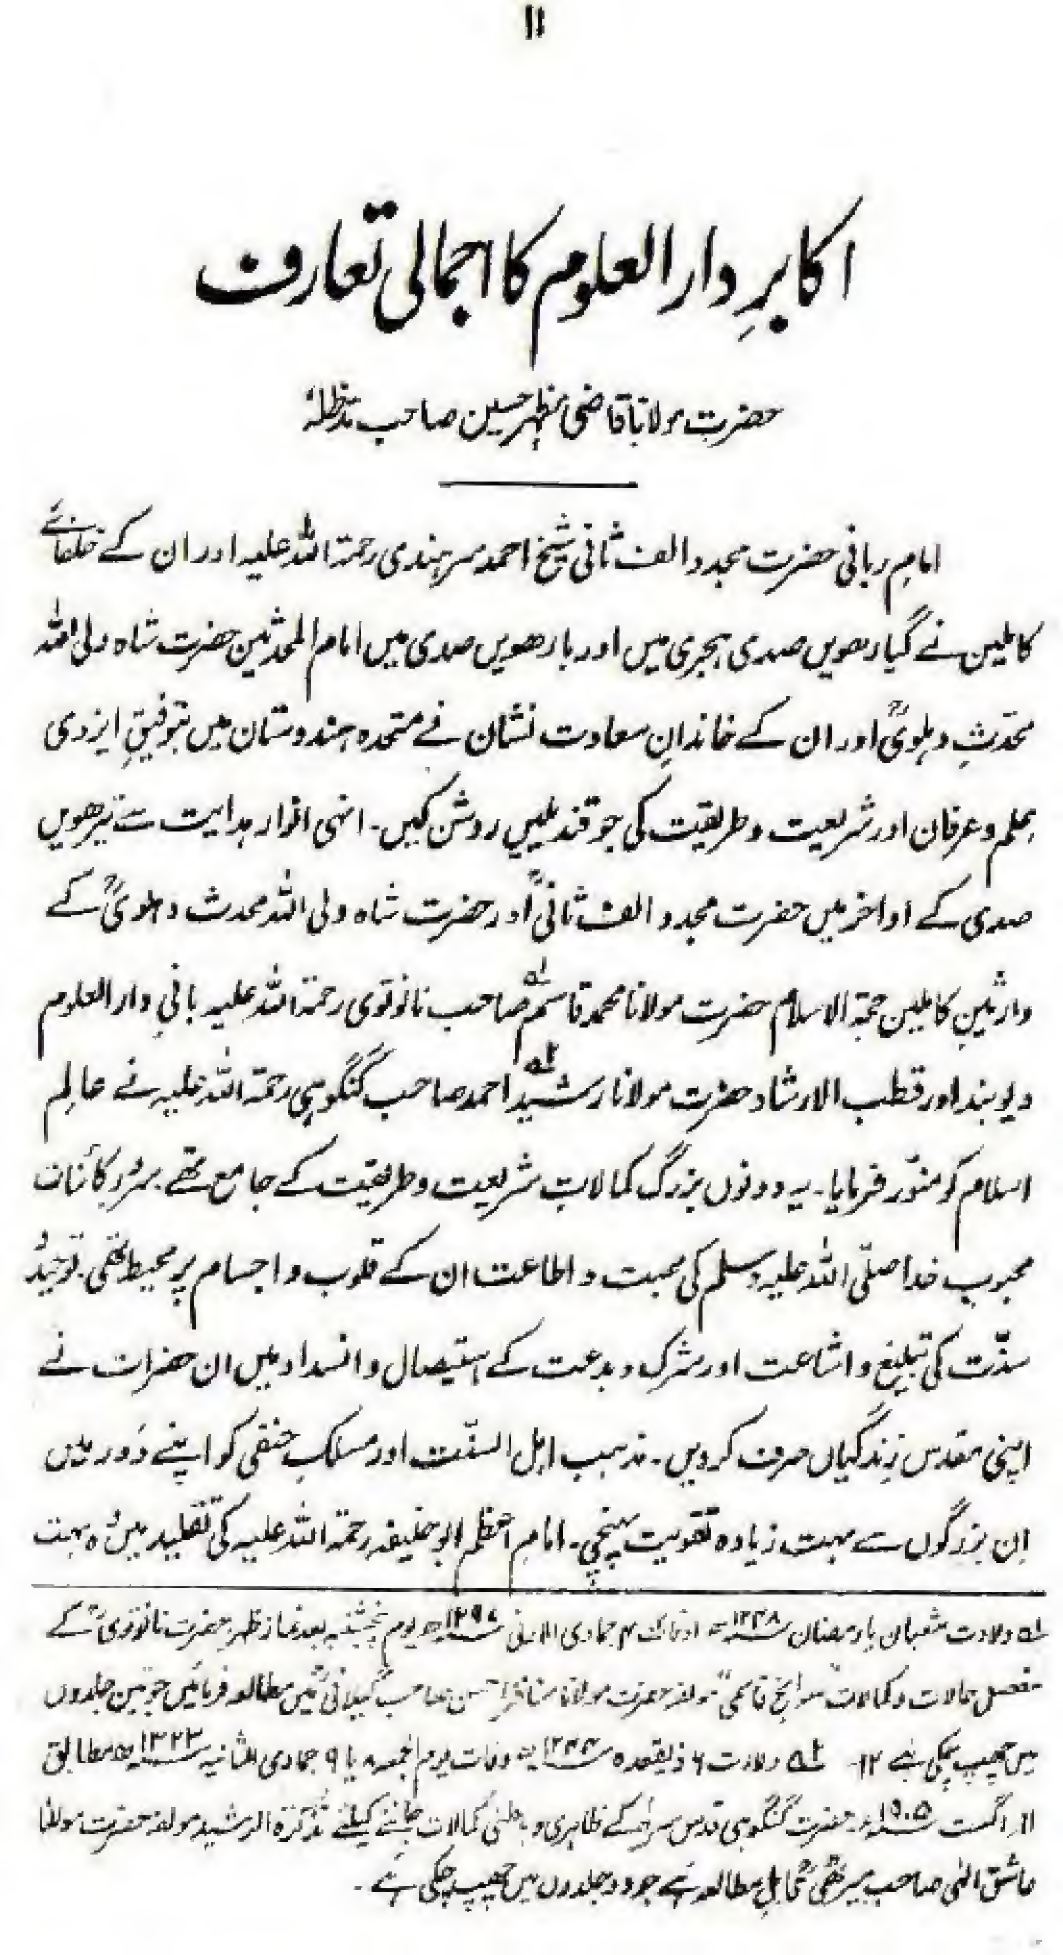 ۱۱
اکابرِ دارالعلوم کا اجمالی تعارف
حضرت مولانا قاضی مظہر حسین صاحب مدظلہٗ
امامِ ربانی حضرت مجدد الف ثانی شیخ احمد سرہندی رحمۃ اللہ علیہ اور ان کے خلفائے
کاملین نے گیارھویں صدی ہجری میں اور بارھویں صدی میں امام المحدثین حضرت شاہ ولی اللہ
محدّثِ دہلویؒ اور ان کے خاندانِ سعادت نشان نے متحدہ ہندوستان میں بتوفیقِ ایزدی
علم و عرفان اور شریعت و طریقت کی جو قندیلیں روشن کیں۔ انہی انوارِ ہدایت سے تیرھویں
صدی کے اواخر میں حضرت مجدد الف ثانیؒ اور حضرت شاہ ولی اللہ محدث دہلویؒ کے
وارثینِ کاملین حجۃ الاسلام حضرت مولانا محمد قاسم ۱؎ صاحب نانوتوی رحمۃ اللہ علیہ بانیِ دارالعلوم
دیوبند اور قطب الارشاد حضرت مولانا رشید ۲؎ احمد صاحب گنگوہی رحمۃ اللہ علیہ نے عالمِ
اسلام کو منوّر فرمایا۔ یہ دونوں بزرگ کمالاتِ شریعت و طریقت کے جامع تھے۔ سرورِ کائنات
محبوبِ خدا صلّی اللہ علیہ وسلم کی محبت و اطاعت ان کے قلوب و اجسام پر محیط تھی۔ توحید و
سنّت کی تبلیغ و اشاعت اور شرک و بدعت کے استیصال و انسداد میں ان حضرات نے
اپنی مقدس زندگیاں صرف کر دیں۔ مذہب اہل السنّت اور مسلکِ حنفی کو اپنے دَور میں
اِن بزرگوں سے بہت زیادہ تقویت پہنچی۔ امامِ اعظم ابوحنیفہ رحمۃ اللہ علیہ کی تقلید میں وہ بہت
۱؎ ولادت شعبان یا رمضان ۱۲۴۸ھ وفات ۴ جمادی الاولیٰ ۱۲۹۷ھ یوم پنجشنبہ بعد نماز ظہر۔ حضرت نانوتویؒ کے
مفصل حالات و کمالات سوانح قاسمی مولفہ حضرت مولانا مناظر احسن صاحب گیلانیؒ میں مطالعہ فرمائیں جو تین جلدوں
میں چھپ چکی ہے ۱۲۔ ۲؎ ولادت ۶ ذیقعدہ ۱۲۴۴ھ وفات یوم جمعہ ۸ یا ۹ جمادی الثانیہ ۱۳۲۳ھ مطابق
۱۱ اگست ۱۹۰۵ء۔ حضرت گنگوہی قدس سرہٗ کے ظاہری و باطنی کمالات جاننے کیلئے تذکرۃ الرشید مولفہ حضرت مولانا
عاشق الٰہی صاحب میرٹھیؒ قابلِ مطالعہ ہے جو دو جلدوں میں چھپ چکی ہے۔